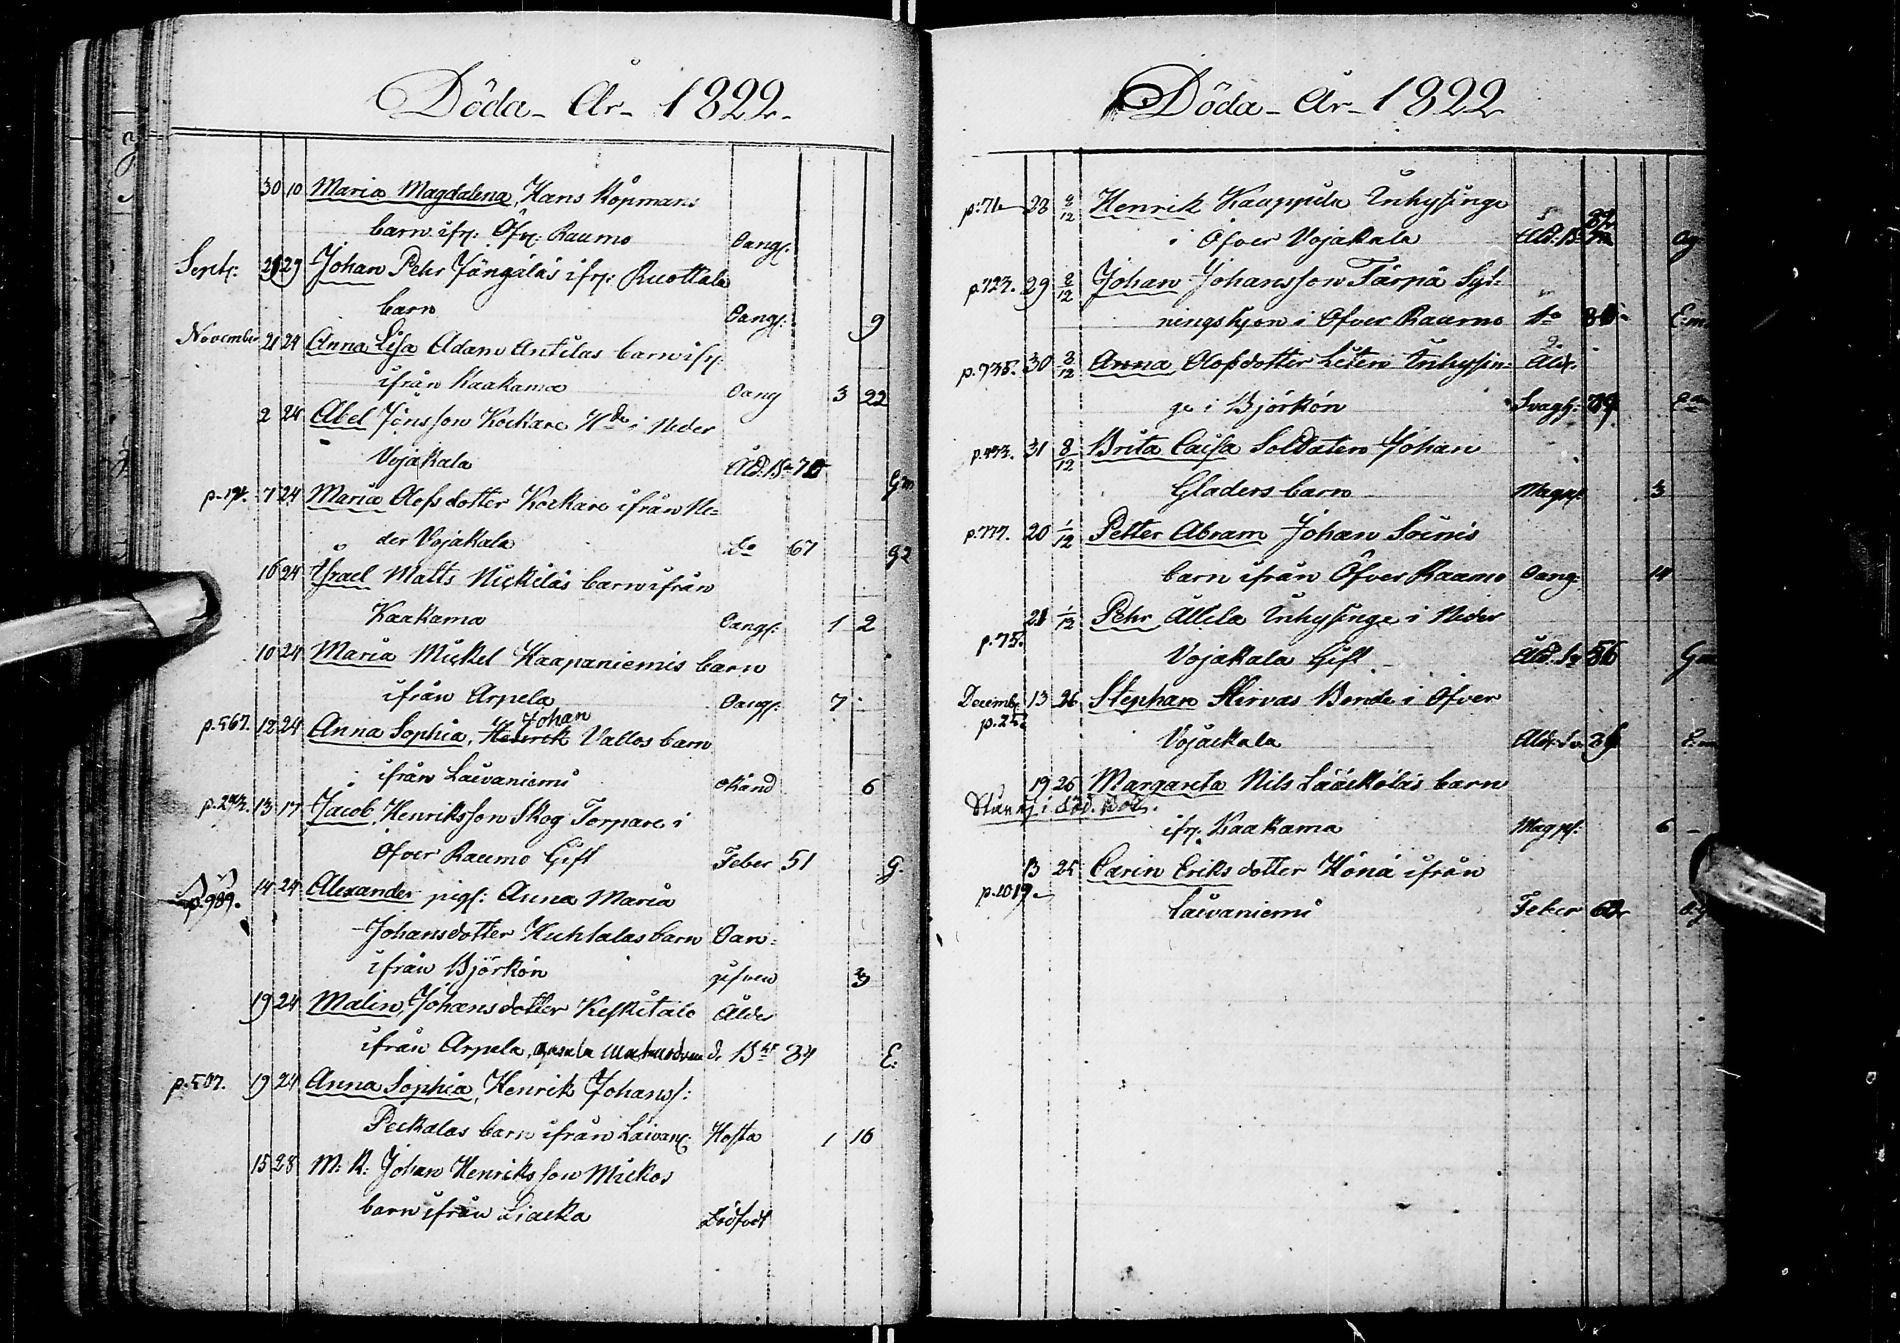 Döda - År - 1822 -
30 10 Maria Magdalena, Hans Köpmans
barn ifr: Öfv: Raumo Oang:
Sept: 29 Johan Pehr Jängäläs ifr: Ruottala
barn Oang: 9
November 21 24 Anna Lisa Adam Antilas barn
ifrån Kaakama Oang 3 22
2 24 Abel Jönsson Kockare i Neder
Vojakala Åld: Br 70 Gm
7 24 Maria Olofsdotter Kockare ifrån Ne=
der Vojakala do 67
16 24 Israel Matts Nickiläs barn ifrån
Kaakama Oang: 1 2
10 24 Maria Mickel Kaapaniemis barn
ifrån Arpela Oang: 7
Johan
p. 567. 12 24 Anna Sophia, Henrik Vallos barn
ifrån Laivaniemi okänd 6
13 17 Jacob Henriksson Skog Torpare i
Öfver Raumo Gift Feber 51 G.
p. 989. 14 24 Alexander pig: Anna Maria
Johansdotter Huhtalas barn Oan=
ifrån Björkön gifven 3
19 24 Malin Johansdotter Keskitalo Ålder
ifrån Arpela, 84 E:
p. 507. 19 24 Anna Sophia, Henrik Johans:
Peckalas barn ifrån Laivan: Hosta 1 16
15 28 M: K: Johan Henriksson Mickos
barn ifrån Liacka Dödfödt
Döda - År - 1822
p: 71 28 8/12 Henrik Kauppila Inhysinge
i Öfver Vojakala Åld: Br
p. 723. 29 8/12 Johan Johansson Tärpä Syt=
ningshjon i Öfver Raumo do 80 E.m.
p. 935. 30 8/12 Anna Olofsdotter Liten Inhysin= Ald:
ge i Björkön Svagh: 79
31 8/12 Brita Caisa Soldaten Johan
Gladers barn Magpl 3
p. 777. 20 1/12 Petter Abram Johan Soinis
barn ifrån Öfver Raumo Oang: 14
21 1/12 Pehr Allila Inhysinge i Neder
p. 75.
Vojakala Gift Åld: Br 56 Gm
Decemb: 13 26 Stephan Hirvas Bonde i Öfver
Vojackala Ald:
19 26 Margareta Nils Lääcköläs barn
ifr: Kaakama Magpl: 6 -
13 25 Carin Eriksdotter Hönä ifrån
p. 1019.
Laivaniemi Feber